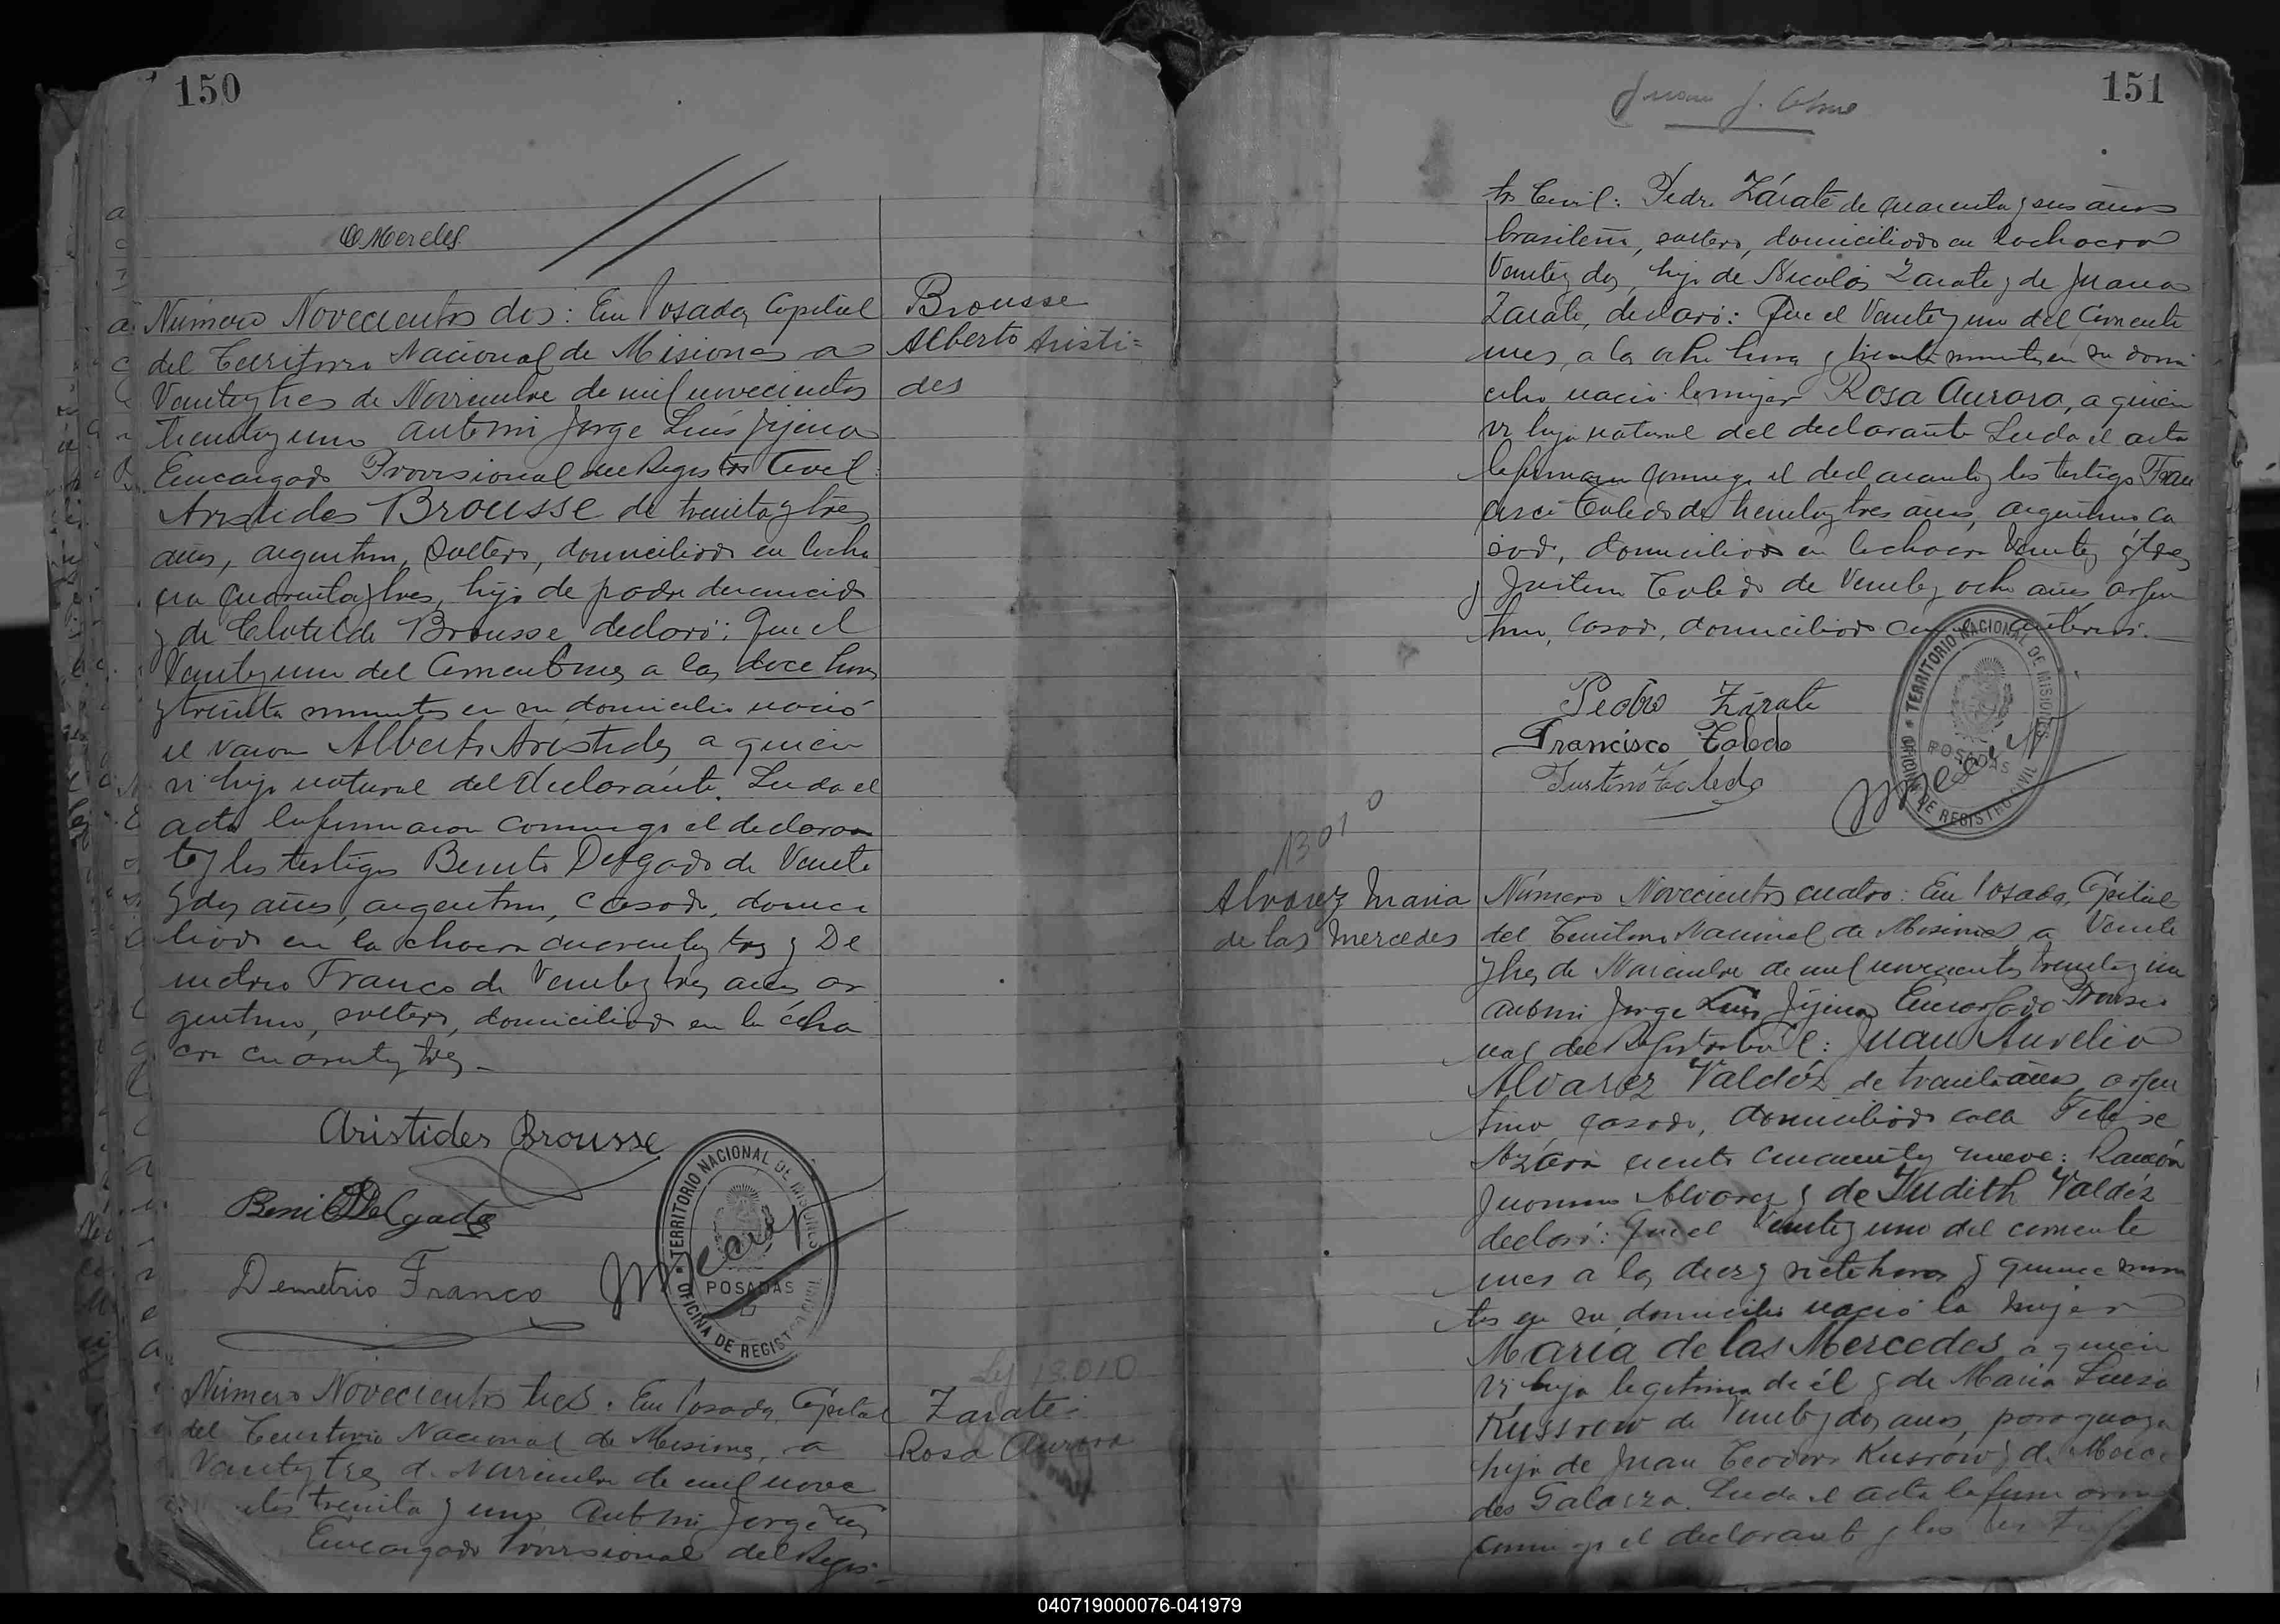 150
Mereles
Número Novecientos dos: En Posadas, Capital
del Territorio Nacional de Misiones a
Veinteytres de Noviembre de mil novecientos
treintayuno ante mi Jorge Luis Jijena
Encargado Provisional del Registro Civil:
Aristides Brousse de treintaytres
años, argentino, soltero, domiciliado en la cha
cra cuarentaytres, hijo de padre desconocido
y de Clotilde Brousse declaró: Que el
Veinteyuno del corriente mes a las doce horas
y treinta minutos en su domicilio nació
el varon Alberto Aristides, a quien
vi hijo natural del declarante. Leida el
acta la firmaron conmigo el declaran
te y los testigos Benito Delgado de Veinte
y dos años, argentino, casado, domici
liado en la chacra cuarentaytres y De
metrio Franco de Veinteytres años ar
gentino, soltero, domiciliado en la cha
cra cuarentaytres.
Brousse
Alberto Aristi=
des
Aristides Brousse
Benito Delgado
Demetrio Franco
TERRITORIO NACIONAL DE MISIONES
POSADAS
OFICINA DE REGISTRO CIVIL
Ley 13.010
Número Novecientos tres: En Posadas, Capital
del Territorio Nacional de Misiones, a
Veinteytres de Noviembre de mil nove
cientos treinta y uno, ante mi, Jorge Luis
Encargado Provisional del Regis-
Zarate
Rosa Aurora
151
Juan J.
tro Civil: Pedro Zárate de cuarenta y seis años
brasileño, soltero, domiciliado en la chacra
Veinteydos, hijo de Nicolás Zarate y de Juana
Zarate, declaró: Que el Veinteyuno del corriente
mes, a las ocho horas y treinta minutos en su domi
cilio nació la mujer Rosa Aurora, a quien
vi hija natural del declarante Leida el acta
la firmaron conmigo el declarante y los testigos Fran
cisco Toledo de treintaytres años, argentino ca
sado, domiciliado en la chacra Veinte y tres
y Justino Toledo de Veinteyocho años argen
tino, casado, domiciliado como el anterior.
Pedro Zárate
Francisco Toledo
Justino Toledo
TERRITORIO NACIONAL DE MISIONES
POSADAS
OFICINA DE REGISTRO CIVIL
13010
Alvarez Maria
de las Mercedes
Número Novecientos cuatro: En Posadas, Capital
del Territorio Nacional de Misiones, a Veinte
ytres de Noviembre de mil novecientos treintayuno
ante mi Jorge Luis Jijena Encargado Provisio
nal del Registro Civil: Juan Aurelio
Alvarez Valdéz de treinta años, argen
tino, casado, domiciliado calle Felix de
Azara ciento cincuenta y nueve: Ramón
Alvarez y de Judith Valdéz
declaró: Que el Veinteyuno del corriente
mes a las diez y siete horas y quince minu
tos en su domicilio nació la mujer
María de las Mercedes, a quien
vi hija legitima de él y de María Luisa
Kussrow de Veinteydos años, paraguaya
hija de Juan Teodoro Kusrow y de Merce
des Galarza. Leida el acta la firmaron
conmigo el declarante y los testigos